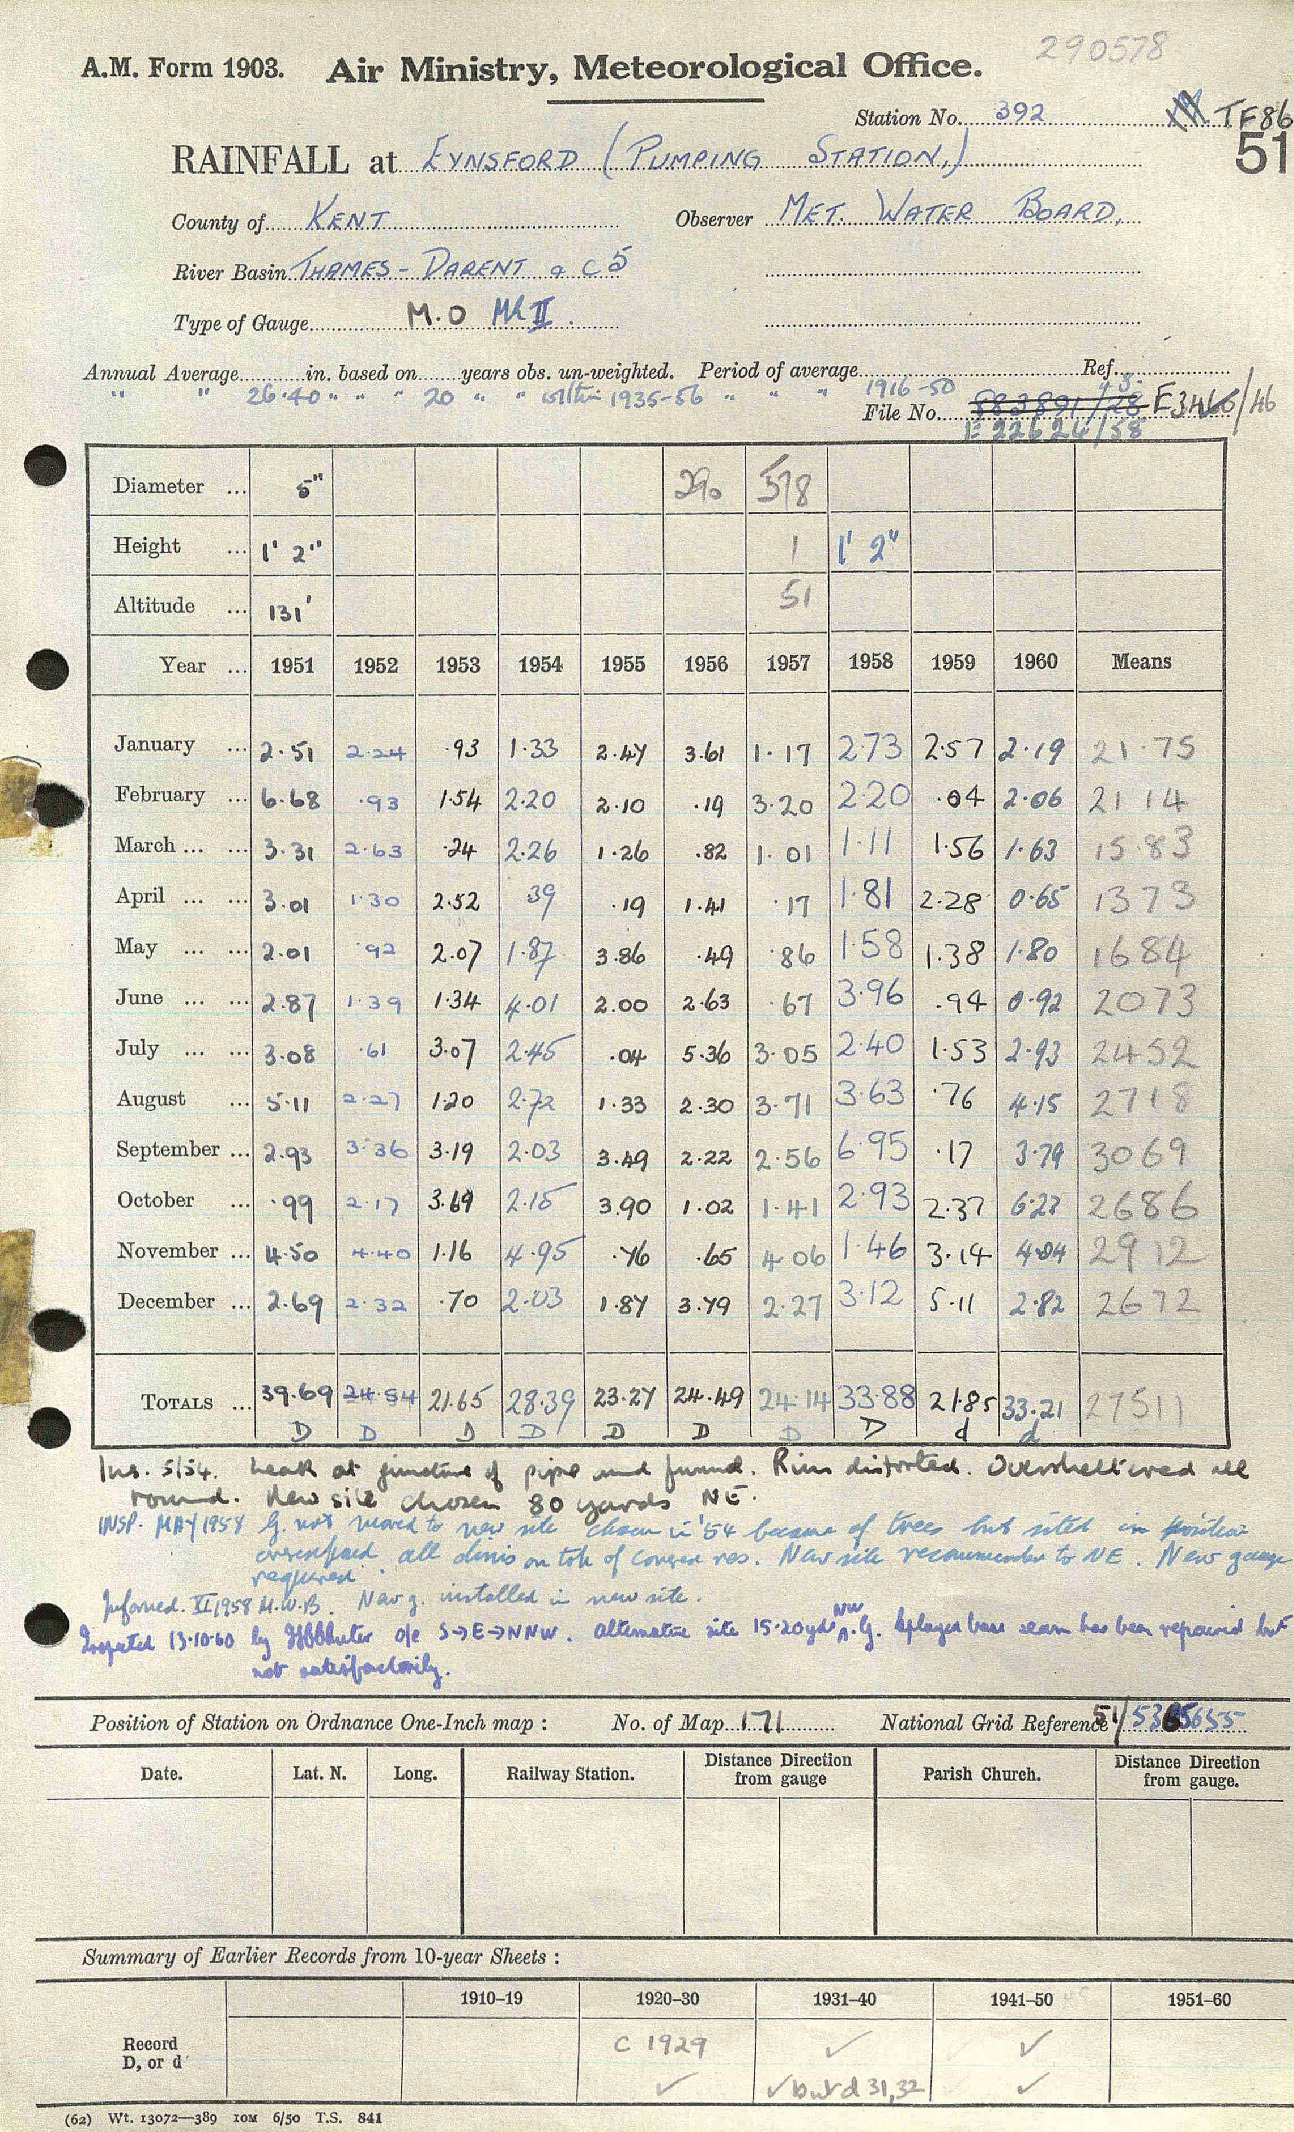 290578
A.M. Form 1903. Air Ministry, Meteorological Office.
Station No. 392 TF86
51
RAINFALL at EYNSFORD (PUMPING STATION.)
County of KENT Observer MET. WATER BOARD,
River Basin THAMES - DARENT a C5
Type of Gauge M.O Mk II.
Annual Average in. based on years obs. un-weighted. Period of average Ref.
" " 26·40 " " " 20 " " within 1935-56 " " " 1916-50
File No. 883891/28 E3466/46
E 22624/58
Diameter ... 5" 290 578
Height ... 1' 2" 1 1' 2"
Altitude ... 131' 51
Year ... 1951 1952 1953 1954 1955 1956 1957 1958 1959 1960 Means
January ... 2·51 2·24 ·93 1·33 2·47 3·61 1·17 2·73 2·57 2·19 21·75
February ... 6·68 ·93 1·54 2·20 2·10 ·19 3·20 2·20 ·04 2·06 21 14
March ... ... 3·31 2·63 ·24 2·26 1·26 ·82 1·01 1·11 1·56 1·63 15·83
April ... ... 3·01 1·30 2·52 ·39 ·19 1·41 ·17 1·81 2·28 0·65 1373
May ... ... 2·01 ·92 2·07 1·87 3·86 ·49 ·86 1·58 1·38 1·80 1684
June ... ... 2·87 1·39 1·34 4·01 2·00 2·63 ·67 3·96 ·94 0·92 2073
July ... ... 3·08 ·61 3·07 2·45 ·04 5·36 3·05 2·40 1·53 2·93 2452
August ... 5·11 2·27 1·20 2·72 1·33 2·30 3·71 3·63 ·76 4·15 2718
September ... 2·93 3·36 3·19 2·03 3·49 2·22 2·56 6·95 ·17 3·79 3069
October ... ·99 2·17 3·69 2·15 3·90 1·02 1·41 2·93 2·37 6·23 2686
November ... 4·50 4·40 1·16 4·95 ·76 ·65 4·06 1·46 3·14 4·04 2912
December ... 2·69 2·32 ·70 2·03 1·87 3·79 2·27 3·12 5·11 2·82 2672
TOTALS ... 39·69 24·54 21·65 28·39 23·27 24·49 24·14 33·88 21·85 33·21 27511
D D D D D D D D d d
Ins. 5/54. Leak at junction of pipe and funnel. Rim distorted. Oversheltered all
round. New site chosen 80 yards NE.
INSP. MAY 1958 G. not moved to new site chosen in '54 because of trees but sited in position
overexposed all dirns on top of covered res. New site recommended to NE. New gauge
required.
Informed. XI 1958 M.W.B. New g. installed in new site.
Inspected 13·10·60 by o/e S→E→NNW. Alternative site 15-20 yds NW of G. Splayed base seam has been repaired but
not satisfactorily.
Position of Station on Ordnance One-Inch map : No. of Map 171 National Grid Reference 51/535655
Date. Lat. N. Long. Railway Station. Distance Direction from gauge Parish Church. Distance Direction from gauge.
Summary of Earlier Records from 10-year Sheets :
1910–19 1920–30 1931–40 1941–50 1951–60
Record C 1929 ✓ ✓
D, or d ✓ ✓ but d 31,32 ✓
(62) Wt. 13072—389 10M 6/50 T.S. 841